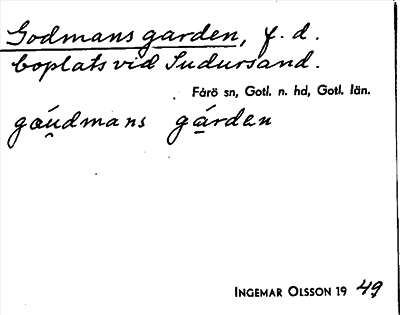 Godmans garden, f. d.
boplats vid Sudursand.
Fårö sn, Gotl. n. hd, Gotl. län.
gæu̯dmans gárdęn
INGEMAR OLSSON 19 49